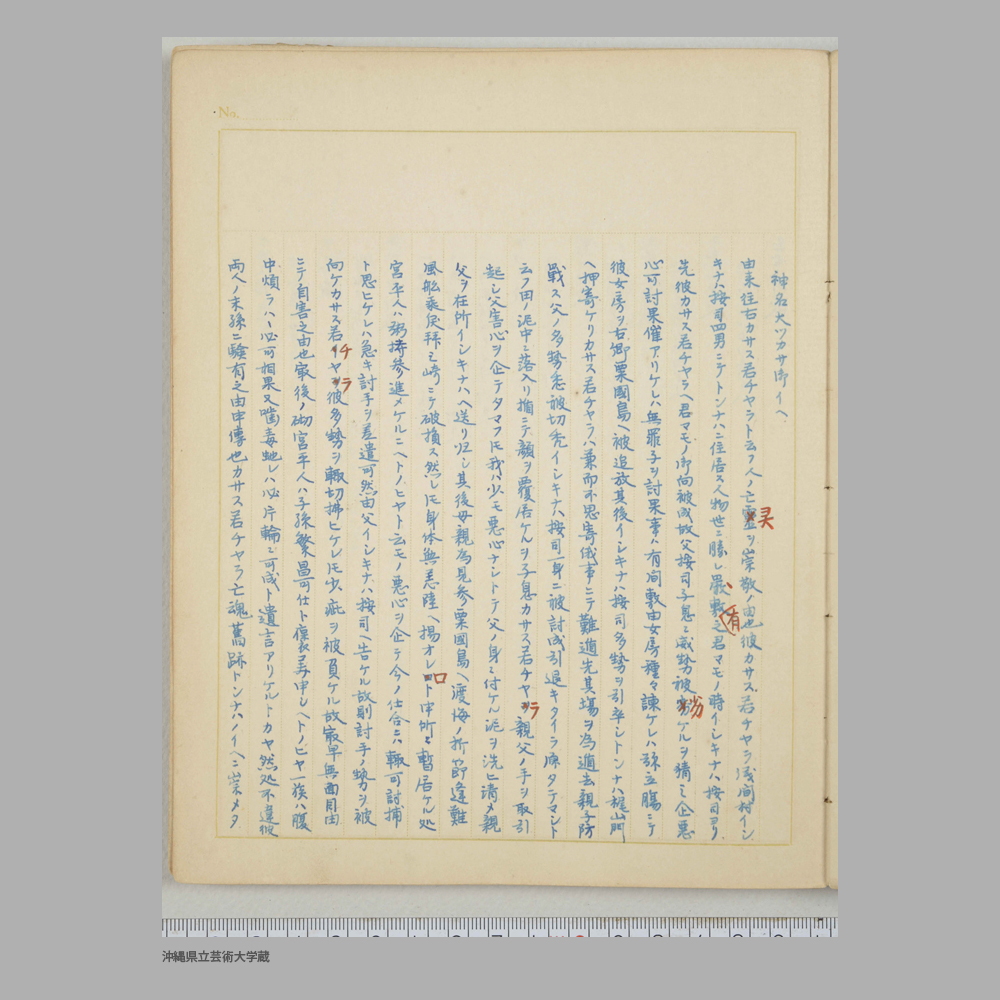 No.
神名大ツカサ御イベ
由来往古カサス若チャラト云フ人ノ亡霊ヲ崇敬ノ由也彼カサス若チャラ浅間村イシ
キナハ按司四男ニテトンナハニ住居ス人物世ニ勝レ厳 之君マモノ時イシキナハ按司ヨリ
先彼カサス若チャラヘ君マモノ御向被成故父按司子息之威勢被 ケルヲ猜ミ企悪
心可討果催アリケレハ無罪子ヲ討果事ハ有間敷由女房種々諫ケレハ弥立腹ニテ
彼女房ヲ右郷粟國島ヘ被追放其後イシキナハ按司多勢ヲ引率シトンナハ梶山門
ヘ押寄ケリカサス若チャラハ兼而不思寄儀事ニテ難遁先其場ヲ為遁去親子防
戦ス父ノ多勢悉被切禿イシキナハ按司一身ニ被討成引退キタイラ原タテマシト
云フ田ノ泥中ニ落入リ 顔ヲ覆居ケルヲ子息カサス若チャラ親父ノ手ヲ取引
起シ父害心ヲ企テタマフ 我ハ少モ悪心ナシトテ父ノ身ニ付ケル泥ヲ洗ヒ清メ親
父ヲ在所イシキナハヘ送リ归シ其後母親為見参粟國島ヘ渡海ノ折節逢難
風舩乘戻拜ミ崎ニテ破損ス然レ 身体無恙陸ヘ揚オレロト申所ニ暫居ケル処
宮平人ハ粥持参進メケルニヘトノヒヤト云モノ悪心ヲ企テ今ノ仕合ニハ輙可討捕
ト思ヒケレハ急キ討手ヲ差遣可然由父イシキナハ按司ヘ告ケル故則討手ノ勢カヲ被
向ケカサス若チヤラ彼多勢ヲ輙切拂ヒケレ 少疵ヲ被負ケル故最早無面目由
ニテ自害之由也最後ノ砌宮平人ハ子孫繁昌可仕ト 再申シヘトノヒヤ一族ハ腹
中煩ラハハ必可相果又嚙毒虵レハ必片輪ニ可成ト遺言アリケルトカヤ然処不違彼
両人ノ末孫ニ驗有之由申傳也カサス若チャラ亡魂舊跡トンナハノイヘニ崇メタ
灵
有
分
ラ
ロ
チ
ラ
沖縄県立芸術大学蔵